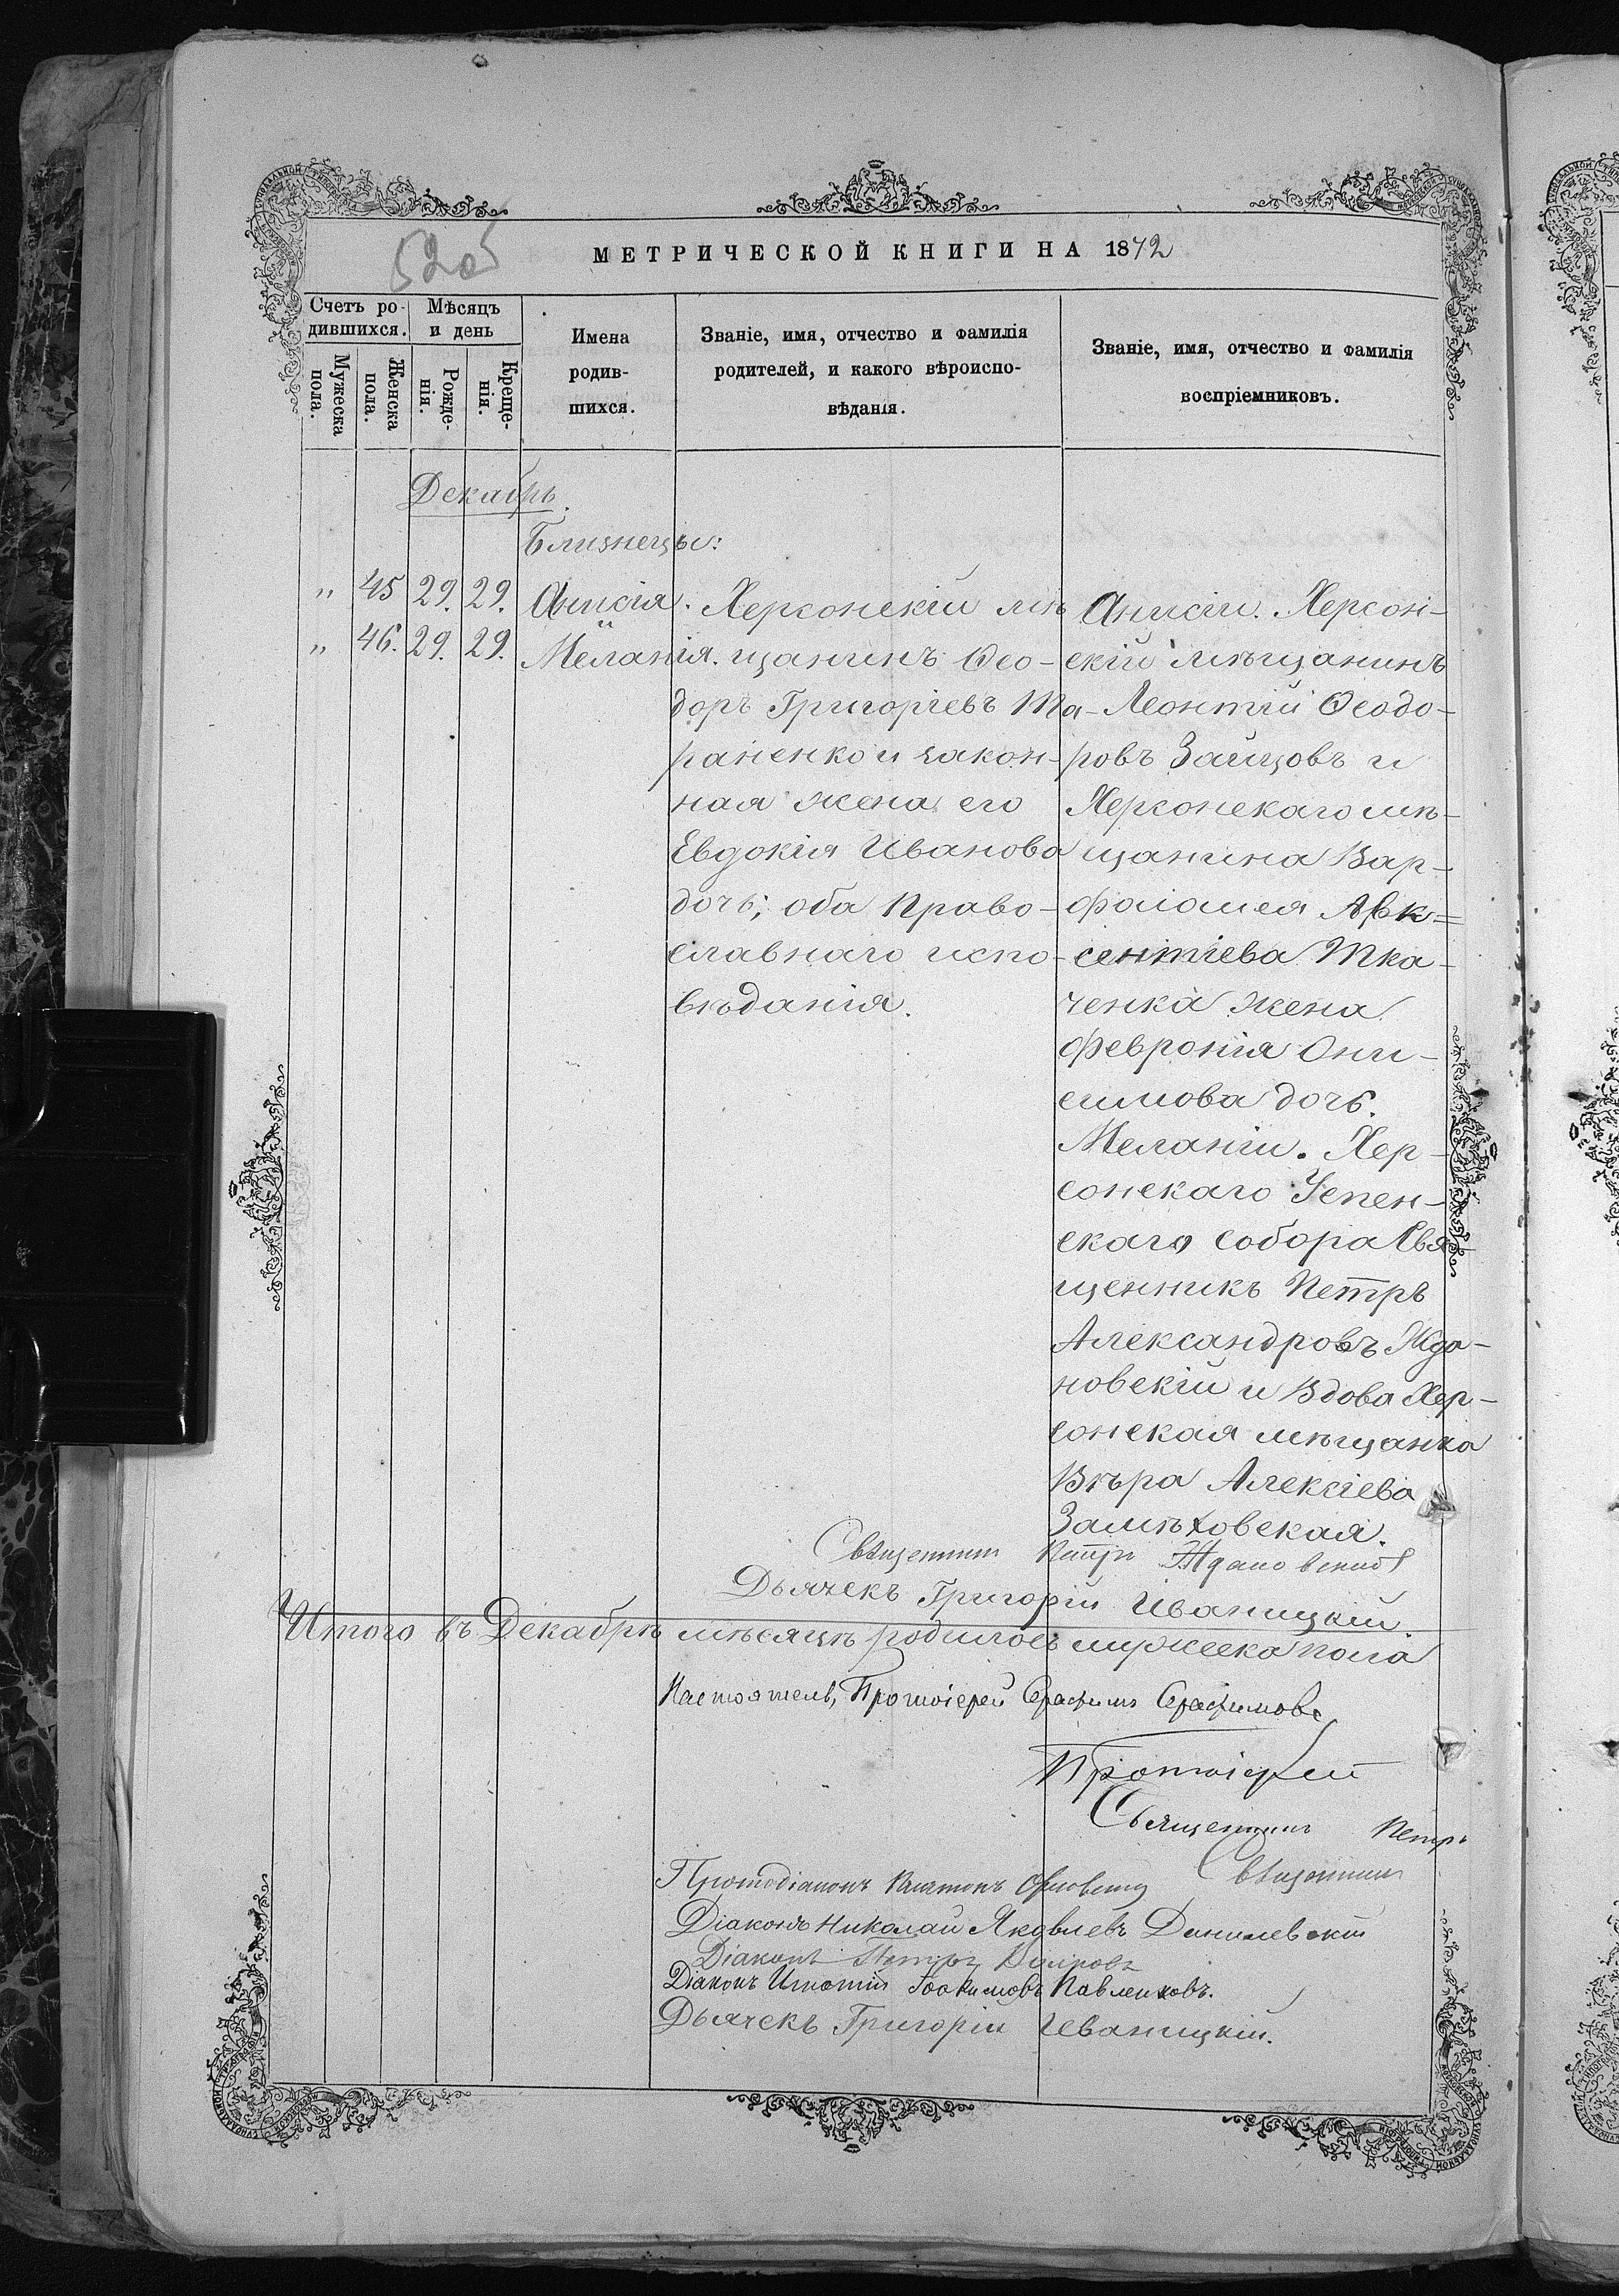 МЕТРИЧЕСКОЙ КНИГИ НА 1872
Счетъ ро-
дившихся.
Мѣсяцъ
и день
Мужеска
пола.
Женска
пола.
Рожде-
нія.
Креще-
нія.
Имена
родив-
шихся.
Званіе, имя, отчество и фамилія
родителей, и какого вѣроиспо-
вѣданія.
Званіе, имя, отчество и фамилія
воспріемниковъ.
Декабрь.
Близнецы:
„ 45 29. 29. Анисія
и
„ 46. 29. 29. Меланія.
Херсонскій мѣ
щанинъ Ѳео-
доръ Григоріевъ Та-
раненко и закон-
ная жена его
Евдокія Иванова
дочь; оба Право-
славнаго испо-
вѣданія.
Анисіи. Херсон-
скій мѣщанинъ
Леонтій Ѳеодо-
ровъ Зайцовъ и
Херсонскаго мѣ-
щанина Вар-
фоломея Авк=
сентіева Тка-
ченка жена
Февронія Они-
симова дочь.
Меланіи. Хер-
сонскаго Успен-
скаго собора Свя-
щенникъ Петръ
Александровъ Жда-
новскій и Вдова Хер-
сонская мѣщанка
Вѣра Алексіева
Замѣховская.
Священникъ Петръ Ждановскій
Дьячекъ Григорій Иваницкій.
Итого въ Декабрѣ мѣсяцѣ родилось мужеска пола
Настоятель, Протоіерей Серафимъ Серафимовъ
Протоіерей
Священникъ Петръ
Священникъ
Протодіаконъ Платонъ
Діаконъ Николай Яковлевъ Данилевскій
Діаконъ
Діаконъ Игнатій Іоакимовъ Павленковъ.
Дьячекъ Григорій Иваницкій.